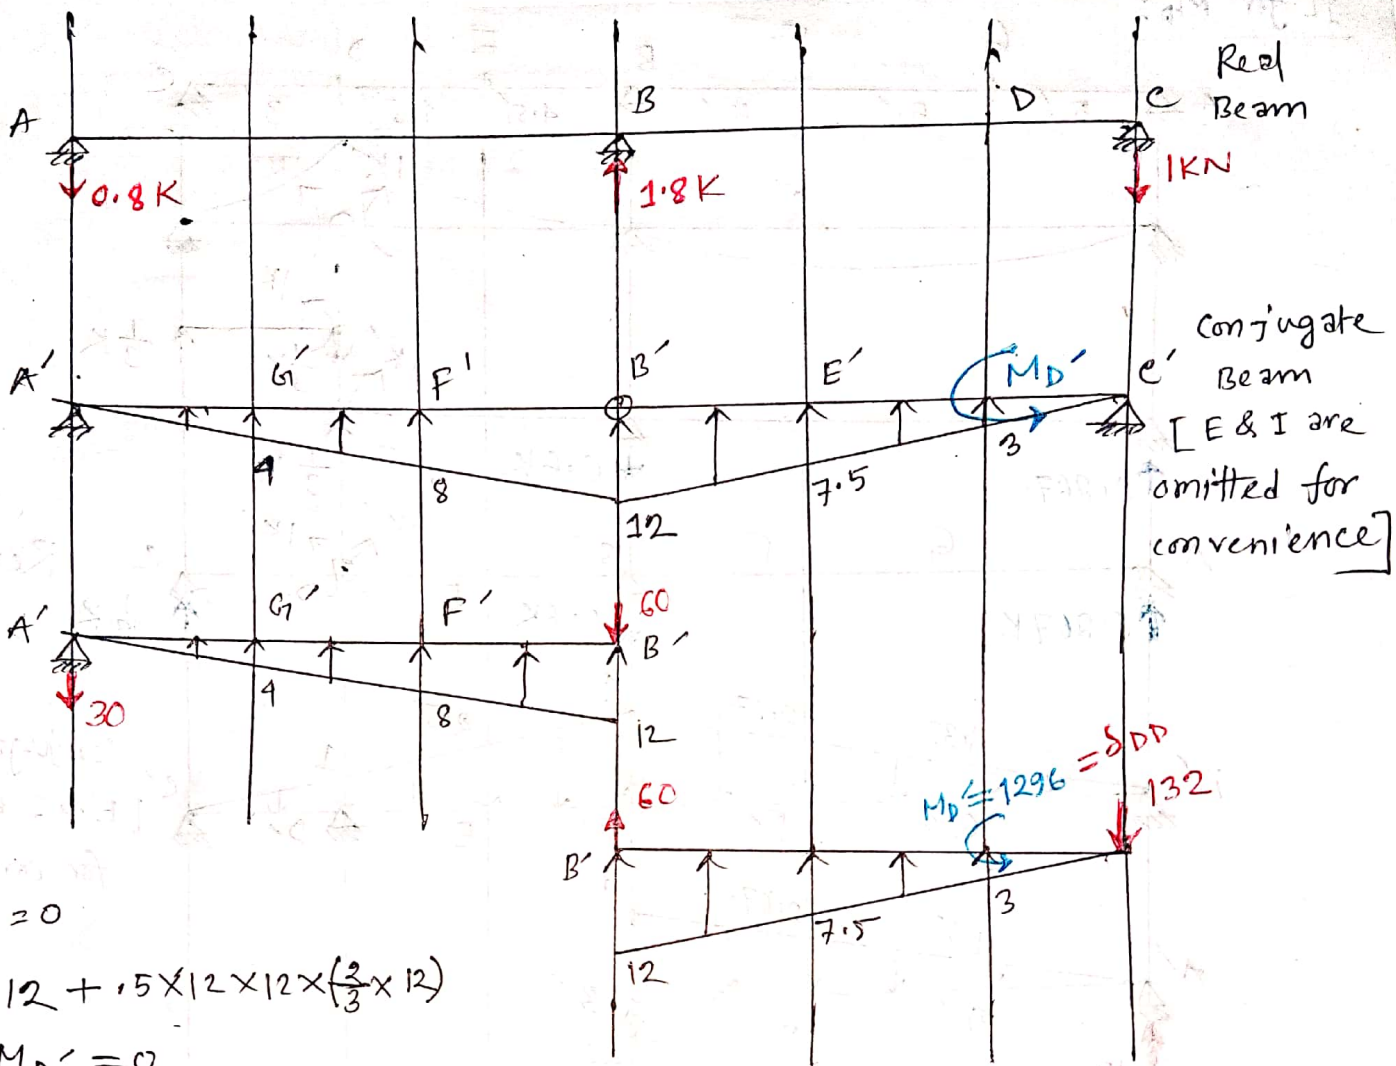 Real
Beam
A
B
D
C
0.8K
1.8K
1KN
Conjugate
Beam
[E & I are
omitted for
convenience]
A'
G'
F'
B'
E'
MD'
C'
4
8
12
7.5
3
A'
G'
F'
60
B'
30
4
8
12
60
MD' = 1296 = δDD
132
B'
12
7.5
3
= 0
12 + .5 X 12 X 12 X (2/3 X 12)
MD' = 0